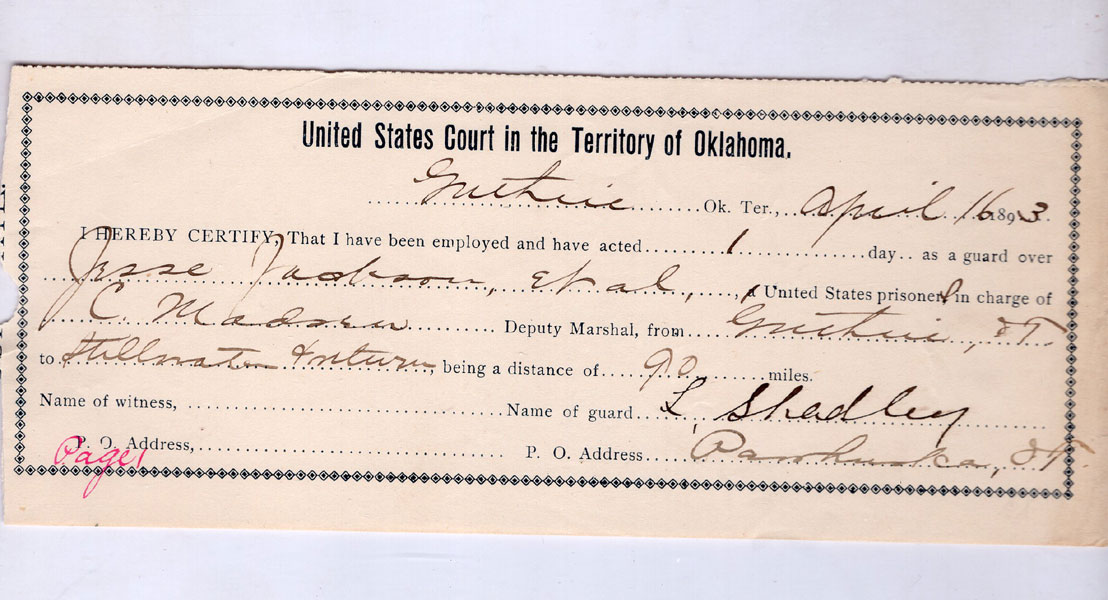 United States Court in the Territory of Oklahoma.
Guthrie Ok. Ter., April 16 1893.
I HEREBY CERTIFY, That I have been employed and have acted 1 day as a guard over
Jesse Jackson, et al, United States prisoner in charge of
C. Madsen Deputy Marshal, from Guthrie, OT.
to Stillwater & return, being a distance of 90 miles.
Name of witness, Name of guard L. Shadley
P. O. Address, P. O. Address Pawhuska, OT.
Page 1